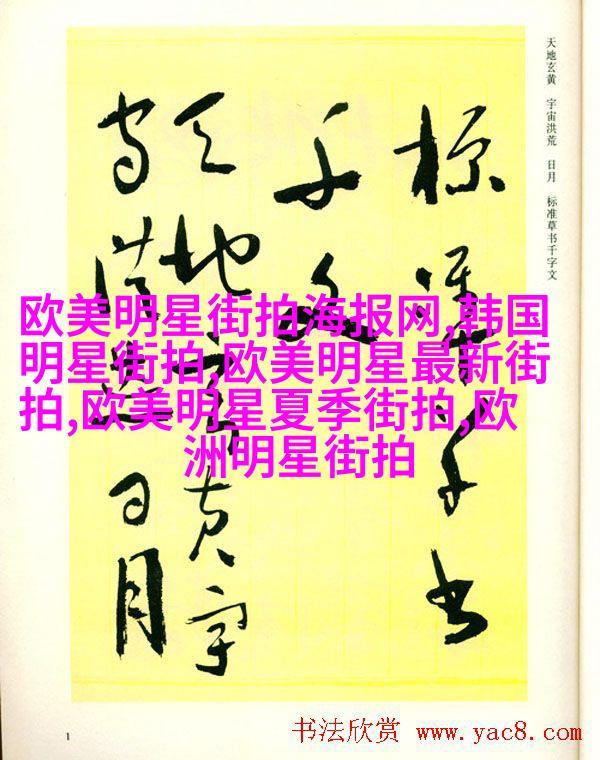 天地玄黄 宇宙洪荒 日月 标准草书千字文
标准草书
千文
天地玄黄宇
宙洪荒日月
欧美明星街拍海报网,韩国
明星街拍,欧美明星最新街
拍,欧美明星夏季街拍,欧
洲明星街拍
1
书法欣赏 www.yac8.com